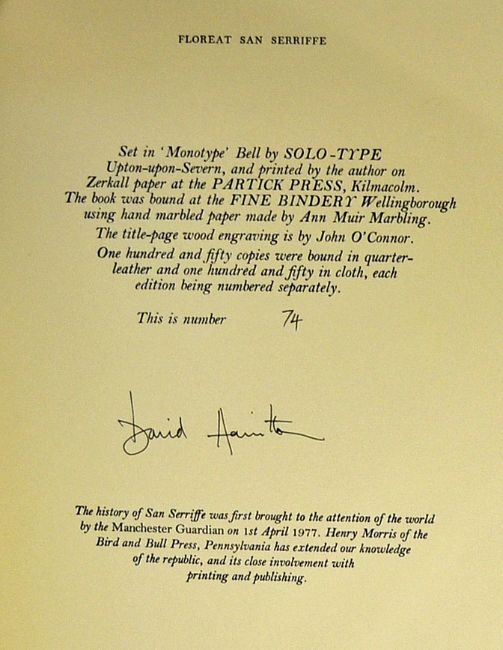 FLOREAT SAN SERRIFFE
Set in 'Monotype' Bell by SOLO-TYPE
Upton-upon-Severn, and printed by the author on
Zerkall paper at the PARTICK PRESS, Kilmacolm.
The book was bound at the FINE BINDERY Wellingborough
using hand marbled paper made by Ann Muir Marbling.
The title-page wood engraving is by John O'Connor.
One hundred and fifty copies were bound in quarter-
leather and one hundred and fifty in cloth, each
edition being numbered separately.
This is number 74
David Hamilton
The history of San Serriffe was first brought to the attention of the world
by the Manchester Guardian on 1st April 1977. Henry Morris of the
Bird and Bull Press, Pennsylvania has extended our knowledge
of the republic, and its close involvement with
printing and publishing.